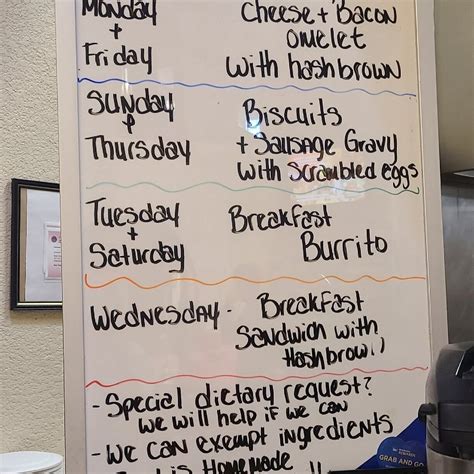 Monday
+
Friday
Cheese + Bacon
omelet
with hashbrown
Sunday
+
Thursday
Biscuits
+ Sausage Gravy
with Scrambled eggs
Tuesday
+
Saturday
Breakfast
Burrito
Wednesday - Breakfast
Sandwich with
Hashbrow
- Special dietary request?
we will help if we can
- We can exempt ingredients
is Homemade
GRAB AND GO